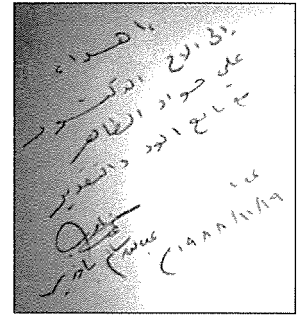 إهداء
إلى الأخ الدكتور
علي جواد الطاهر
مع خالص الود والتقدير
١٩٨٨/١١/١٩